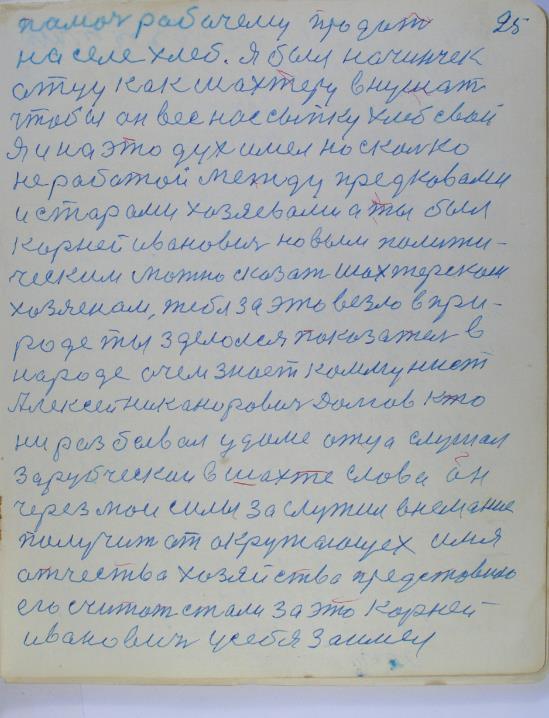 памоч рабачему продат 25
на селе хлеб. Я был начинчек
отцу как шахтеру внушат
чтобы он вес нассыпку хлеб свой
Я и на это дух имел но сколко
не работой между предковами
и старами хозяевами а ты был
Корней иванович новым полити-
ческим можно сказат шахтерским
хозяеном, тебя за это везло в при-
роде ты зделолся показател в
народе о чем знает коммунист
Алексей никанорович Долгов кто
ни раз бывал у доме отца слушал
зарубческаи в шахте слова он
через мои силы заслужил внемание
получит от окружающех имя
отчества хозяйства представило
его считат стали за это Корней
иванович у себя заимел